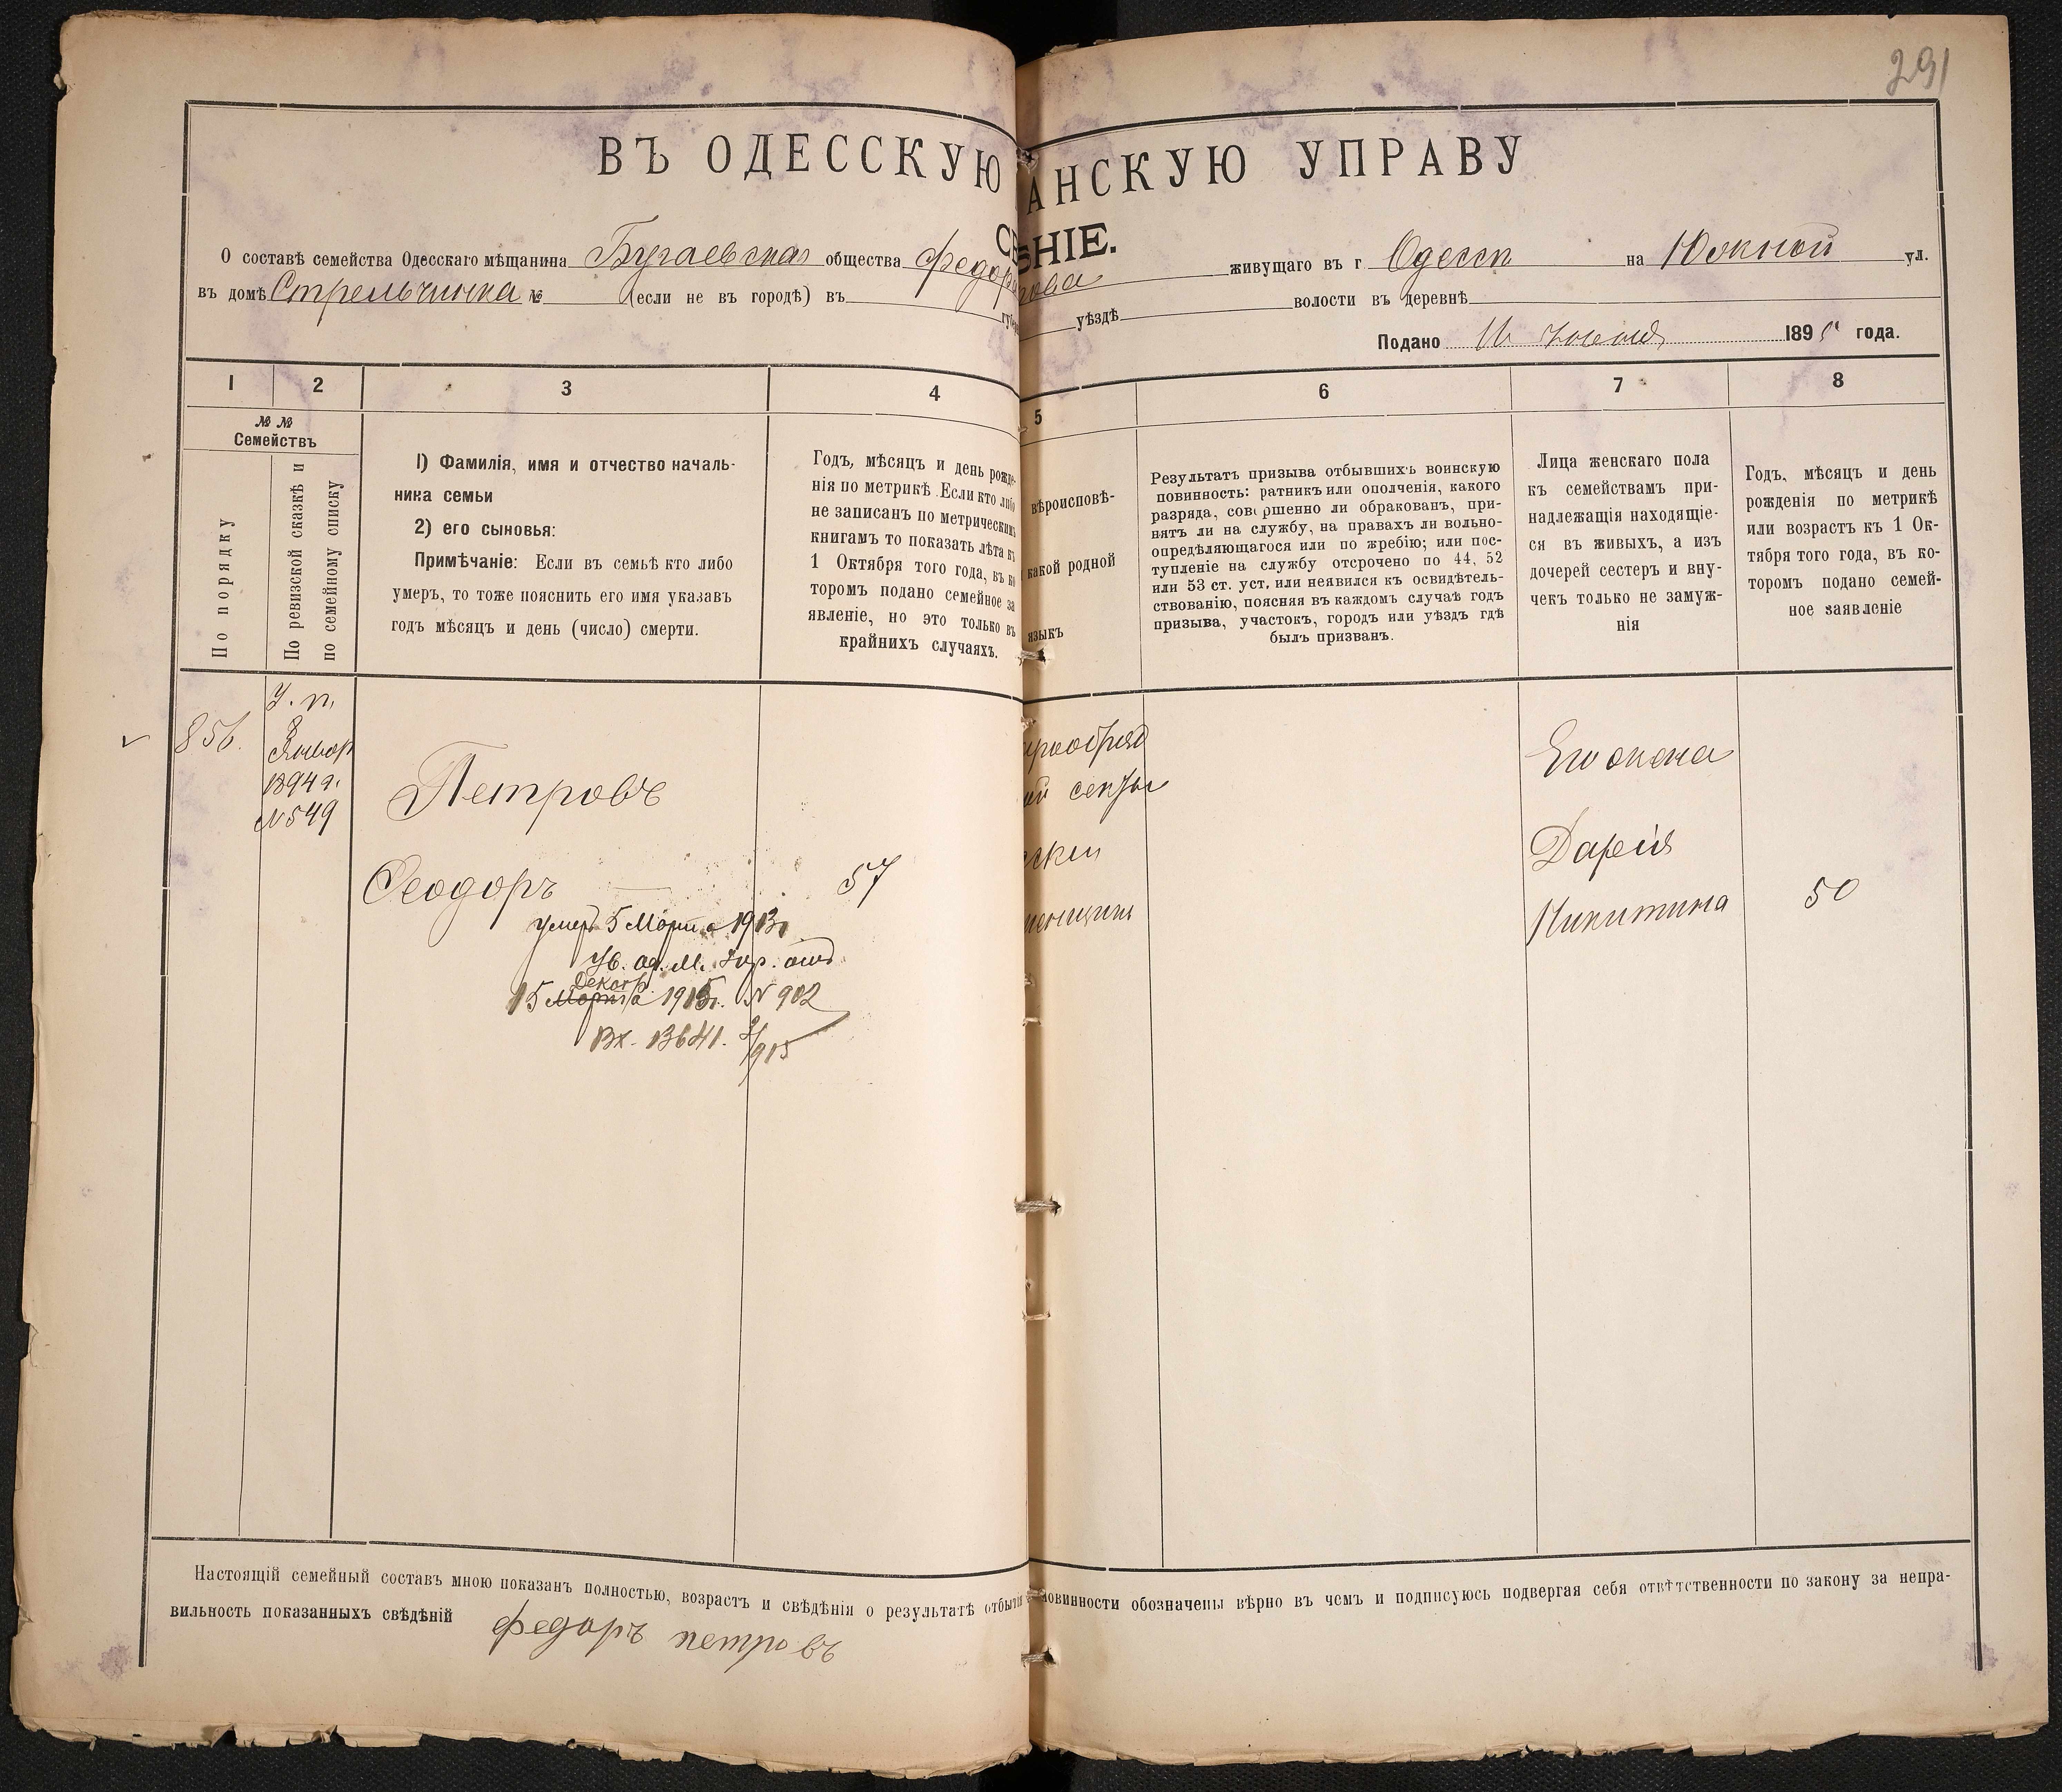 291
ВЪ ОДЕССКУЮ АНСКУЮ УПРАВУ
ЕНІЕ.
О составѣ семейства Одесскаго мѣщанина Бугаевскаго общества Федора живущаго въ г Одессѣ на Южной ул.
въ домѣ Стрельчинка № (если не въ городѣ) въ уѣздѣ волости въ деревнѣ
Подано 189 года.
1 2 3 4 5 6 7 8
№ №
Семействъ
По порядку
По ревизской сказкѣ и
по семейному списку
1) Фамилія, имя и отчество началь-
ника семьи
2) его сыновья:
Примѣчаніе: Если въ семьѣ кто либо
умеръ, то тоже пояснить его имя указавъ
годъ мѣсяцъ и день (число) смерти.
Годъ, мѣсяцъ и день рожде-
нія по метрикѣ. Если кто либо
не записанъ по метрическимъ
книгамъ то показать лѣта къ
1 Октября того года, въ ко
торомъ подано семейное за
явленіе, но это только въ
крайнихъ случаяхъ.
вѣроисповѣ-
какой родной
языкъ
Результатъ призыва отбывшихъ воинскую
повинность: ратникъ или ополченія, какого
разряда, совершенно ли обракованъ, при-
нятъ ли на службу, на правахъ ли вольно-
опредѣляющагося или по жребію; или пос-
тупленіе на службу отсрочено по 44, 52
или 53 ст. уст. или неявился къ освидѣтель-
ствованію, поясняя въ каждомъ случаѣ годъ
призыва, участокъ, городъ или уѣздъ гдѣ
былъ призванъ.
Лица женскаго пола
къ семействамъ при-
надлежащія находящіе-
ся въ живыхъ, а изъ
дочерей сестеръ и вну-
чекъ только не замуж-
нія
Годъ, мѣсяцъ и день
рожденія по метрикѣ
или возрастъ къ 1 Ок-
тября того года, въ ко-
торомъ подано семей-
ное заявленіе
856.
У. п.
8
Январ
1894 г.
№ 549
Петровъ
Феодоръ
57
умеръ 5 Марта 1913 г
15 Марта Декабр 1915 г. № 902
Вх. 13641. 9/915
секты
Его жена
Дарія
Никитина
50
Настоящій семейный составъ мною показанъ полностью, возрастъ и свѣдѣнія о результатѣ отбытія повинности обозначены вѣрно въ чемъ и подписуюсь подвергая себя отвѣтственности по закону за непра-
вильность показанныхъ свѣдѣній
федоръ петровъ